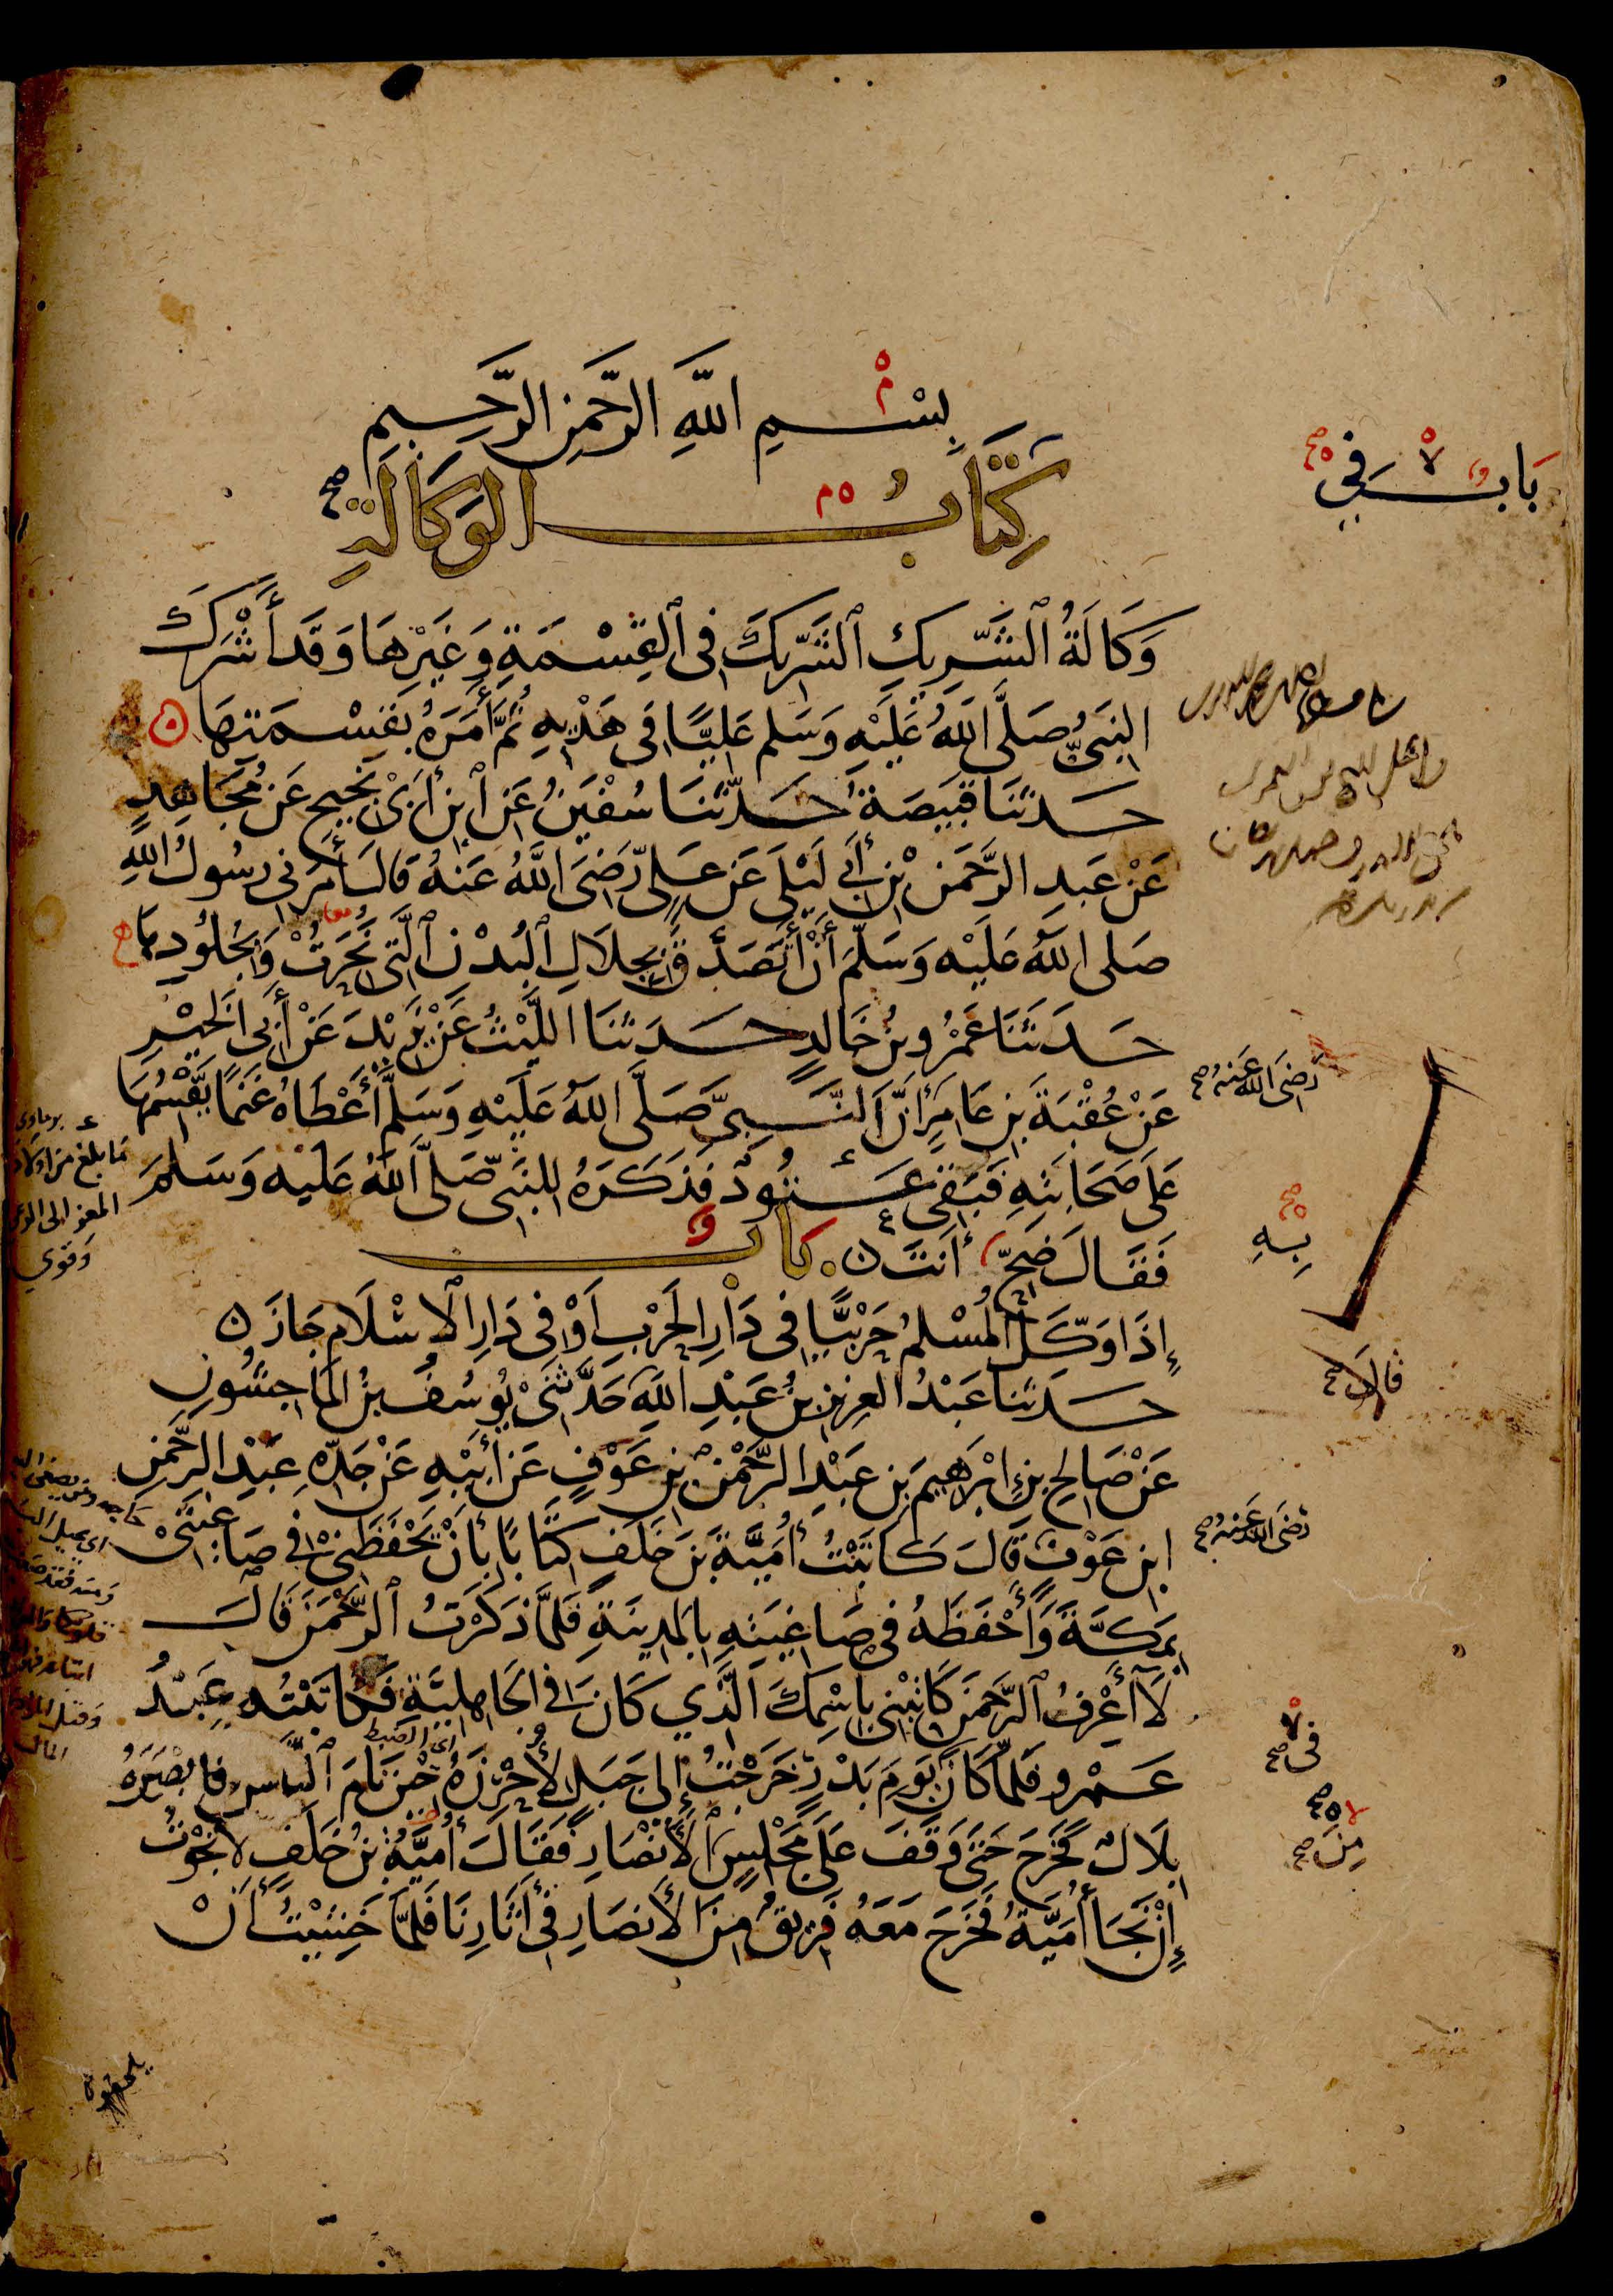 بِسْمِ اللَّهِ الرَّحْمَنِ الرَّحِيمِ
كِتَابُ الوَكَالَةِ صح
بَابٌ فِي صح
وَكَالَةُ ٱلشَّرِيكِ ٱلشَّرِيكَ فِي ٱلقِسْمَةِ وَغَيْرِهَا وَقَد أَشْرَكَ
النَّبِيُّ صَلَّى اللَّهُ عَلَيْهِ وَسَلم عَلِيًّا فِي هَدْيِهِ ثُمَّ أَمَرَهُ بِقِسْمَتِهَا
حَدثَنَا قَبِيصَةُ حَدثَنَا سُفْيَنُ عَنِ ٱبنِ أَبِي نَجِيحٍ عَن مُجَاهِدٍ
عَنْ عَبدِ الرَّحمَنِ بْنِ أَبِي لَيْلَى عَن عَلِيٍّ رَضِيَ اللَّهُ عَنهُ قَالَ أَمَرَنِي رَسُولُ اللهِ
صَلى اللهُ عَلَيْهِ وَسَلَّمَ أَنْ أَتَصَدَّقَ بِجِلَالِ ٱلبُدْنِ ٱلَّتِي نُحِرَتْ وَبِجُلُودِهَا
حَدثَنَا عَمْرُو بنُ خَالِدٍ حَدثَنَا اللَّيْثُ عَنْ يَزِيدَ عَنْ أَبِي الخَيْرِ
عَنْ عُقْبَةَ بنِ عَامِرٍ أَنَّ النَّبِيَّ صَلَّى اللهُ عَلَيْهِ وَسَلَّمَ أَعْطَاهُ غَنَمًا يَقْسِمُهَا
رَضِيَ اللهُ عَنهُ صح
عَلَى صَحَابَتِهِ فَبَقِيَ عَتُودٌ فَذَكَرَهُ لِلنَّبِيِّ صَلَّى اللهُ عَلَيْهِ وَسَلمَ
فَقَالَ ضَحِّ أَنتَ باب
بِهِ صح
إِذَا وَكَّلَ المُسْلِمُ حَرْبِيًّا فِي دَارِ الحَرْبِ أَوْ فِي دَارِ الإِسْلَامِ جَازَ
حَدثَنَا عَبْدُ العَزِيزِ بنُ عَبْدِ اللهِ حَدَّثَنِي يُوسُفُ بنُ المَاجِشُونِ
قالَ صح
عَنْ صَالِحِ بنِ إِبْرَهِيمَ بنِ عَبْدِ الرَّحْمَنِ بنِ عَوْفٍ عَن أَبِيْهِ عَنْ جَدِّهِ عَبْدِ الرَّحْمَنِ
ابنِ عَوْفٍ قَالَ كَاتَبْتُ أُمَيَّةَ بنَ خَلَفٍ كِتَابًا بِأَنْ يَحْفَظَنِي فِي صَاغِيَتِي
رَضِيَ اللهُ عَنهُ صح
بِمَكَّةَ وَأَحْفَظَهُ فِي صَاغِيَتِهِ بِالمَدِينَةِ فَلَمَّا ذَكَرْتُ ٱلرَّحْمَنَ قَالَ
لَا أَعْرِفُ ٱلرَّحمَنَ كَاتِبْنِي بِاسْمِكَ الَّذِي كَانَ فِي الجَاهِلِيَّةِ فَكَاتَبْتُهُ عَبْدُ
عَمْرٍو فَلَمَّا كَانَ يَومُ بَدْرٍ خَرَجْتُ إِلَى جَبَلٍ لِأُحْرِزَهُ حِينَ نَامَ ٱلنَّاسُ فَأَبْصَرَهُ
فِي صح
بِلَالٌ فَخَرَجَ حَتَّى وَقَفَ عَلَى مَجْلِسٍ ٱلأَنْصَارِ فَقَالَ أُمَيَّةُ بنُ خَلَفٍ لَا نَجَوْتُ
مِنَ صح
إِنْ نَجَا أُمَيَّةُ فَخَرَجَ مَعَهُ فَرِيقٌ مِنَ الأَنصَارِ فِي آثَارِنَا فَلَمَّا خَشِيْتُ أَنْ